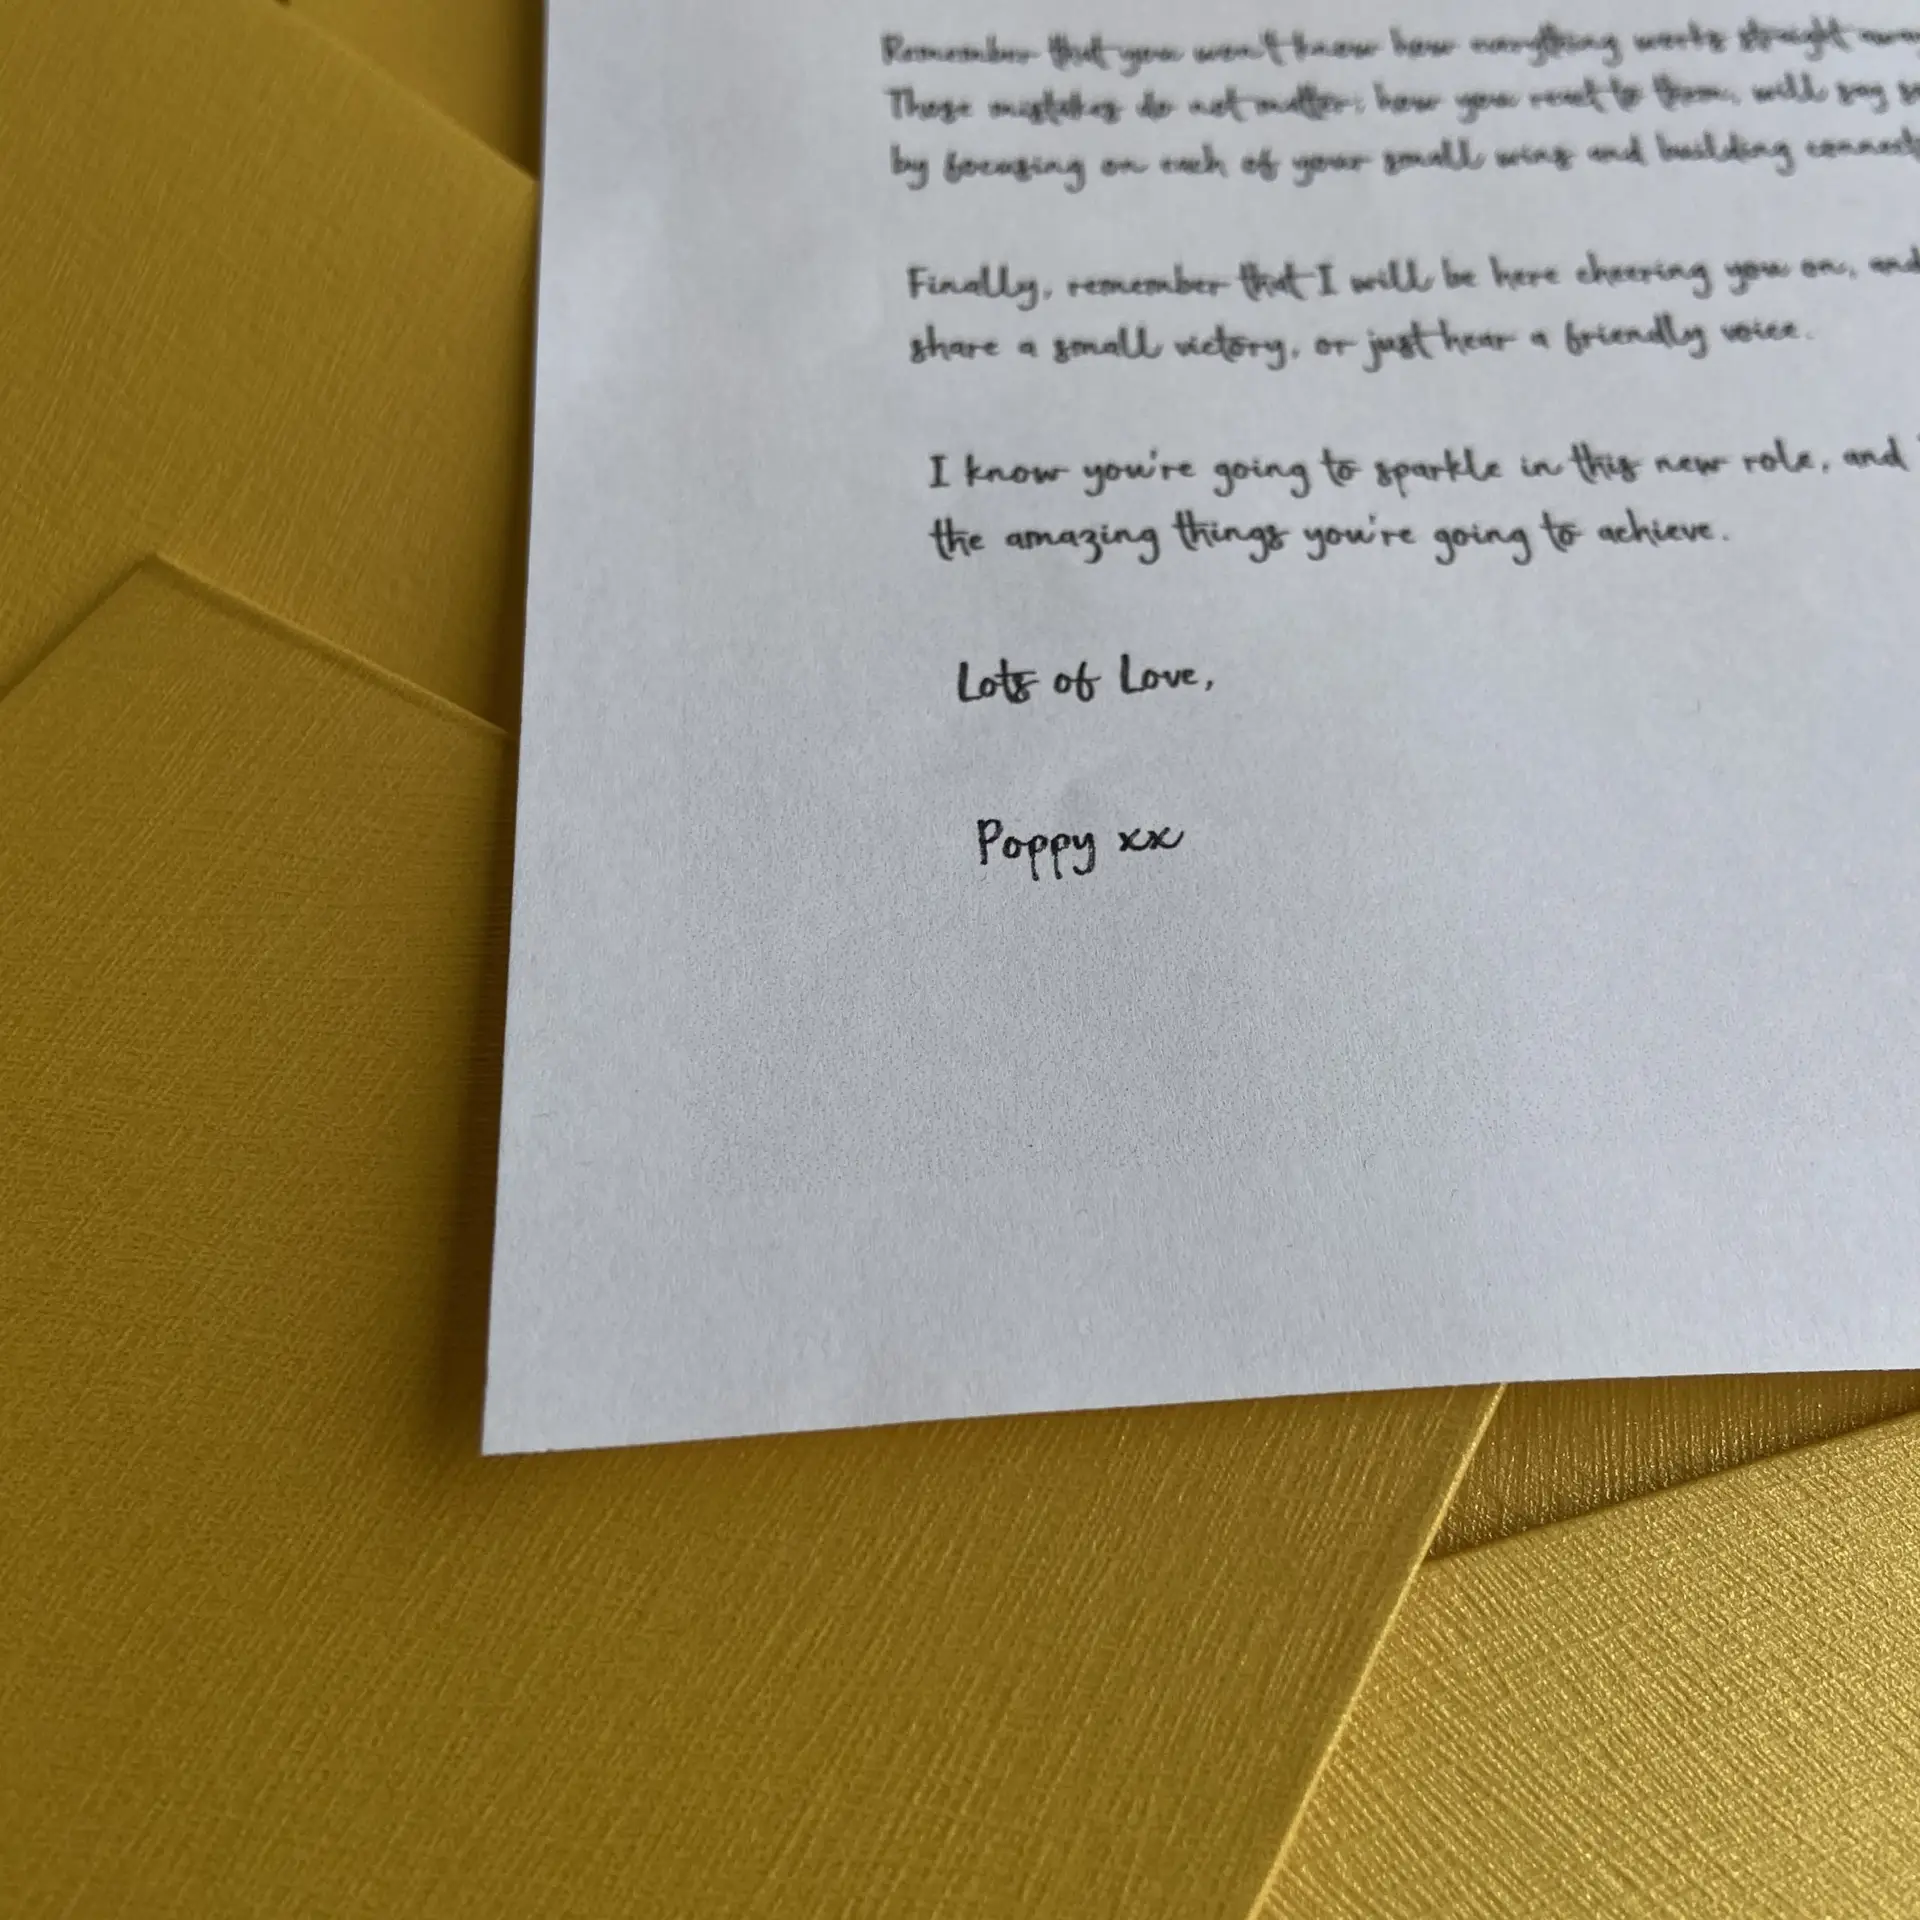 Remember that you won't know how everything works straight away
Those mistakes do not matter; how you react to them, will say
by focusing on each of your small wins and building
Finally, remember that I will be here cheering you on, and
share a small victory, or just hear a friendly voice.
I know you're going to sparkle in this new role, and
the amazing things you're going to achieve.
Lots of Love,
Poppy xx